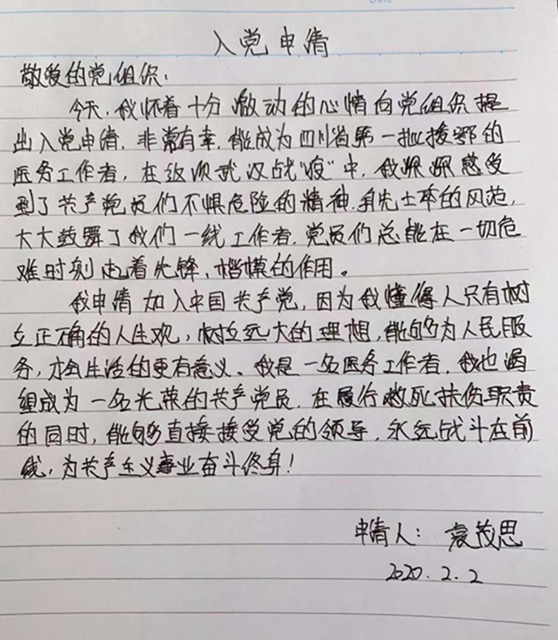 入党申请
敬爱的党组织:
今天,我怀着十分激动的心情向党组织提
出入党申请,非常有幸,能成为四川省第一批援鄂的
医务工作者,在这次武汉战"疫"中,我深深感受
到了共产党员们不惧危险的精神,身先士卒的风范,
大大鼓舞了我们一线工作者,党员们总能在一切危
难时刻起着先锋、楷模的作用。
我申请加入中国共产党,因为我懂得人只有树
立正确的人生观,树立远大的理想,能够为人民服
务,才会生活的更有意义。我是一名医务工作者,我也渴
望成为一名光荣的共产党员,在履行救死扶伤职责
的同时,能够直接接受党的领导,永远战斗在前
线,为共产主义事业奋斗终身!
申请人:袁茂思
2020.2.2